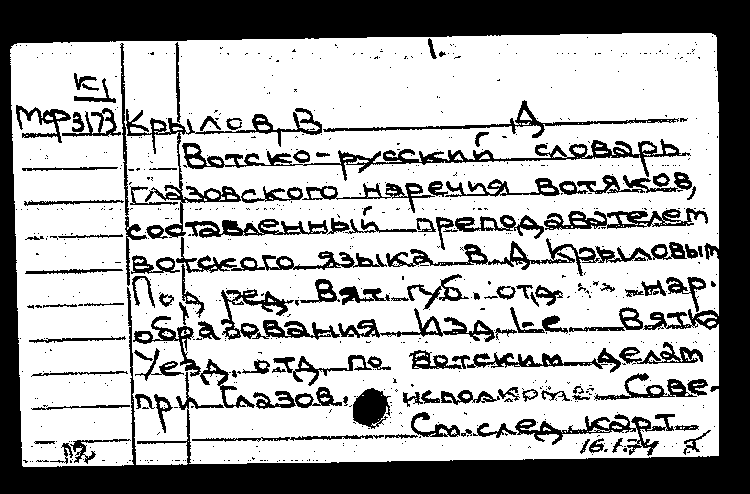 1.
К1
Мфр3173 Крылов, В Д
Вотско-русский словарь
глазовского наречия вотяков,
составленный преподавателем
вотского языка В Д Крыловым
Под ред. Вят. губ. отд. нар.
образования Изд. 1-е Вятка
Уезд. отд. по вотским делам
при Глазов. исполкоме Сове-
См. след. карт
16.1.74